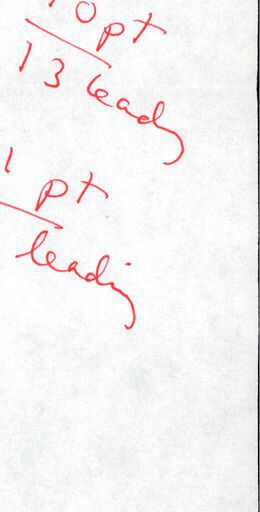 10pt
13 leading
1 pt
leading